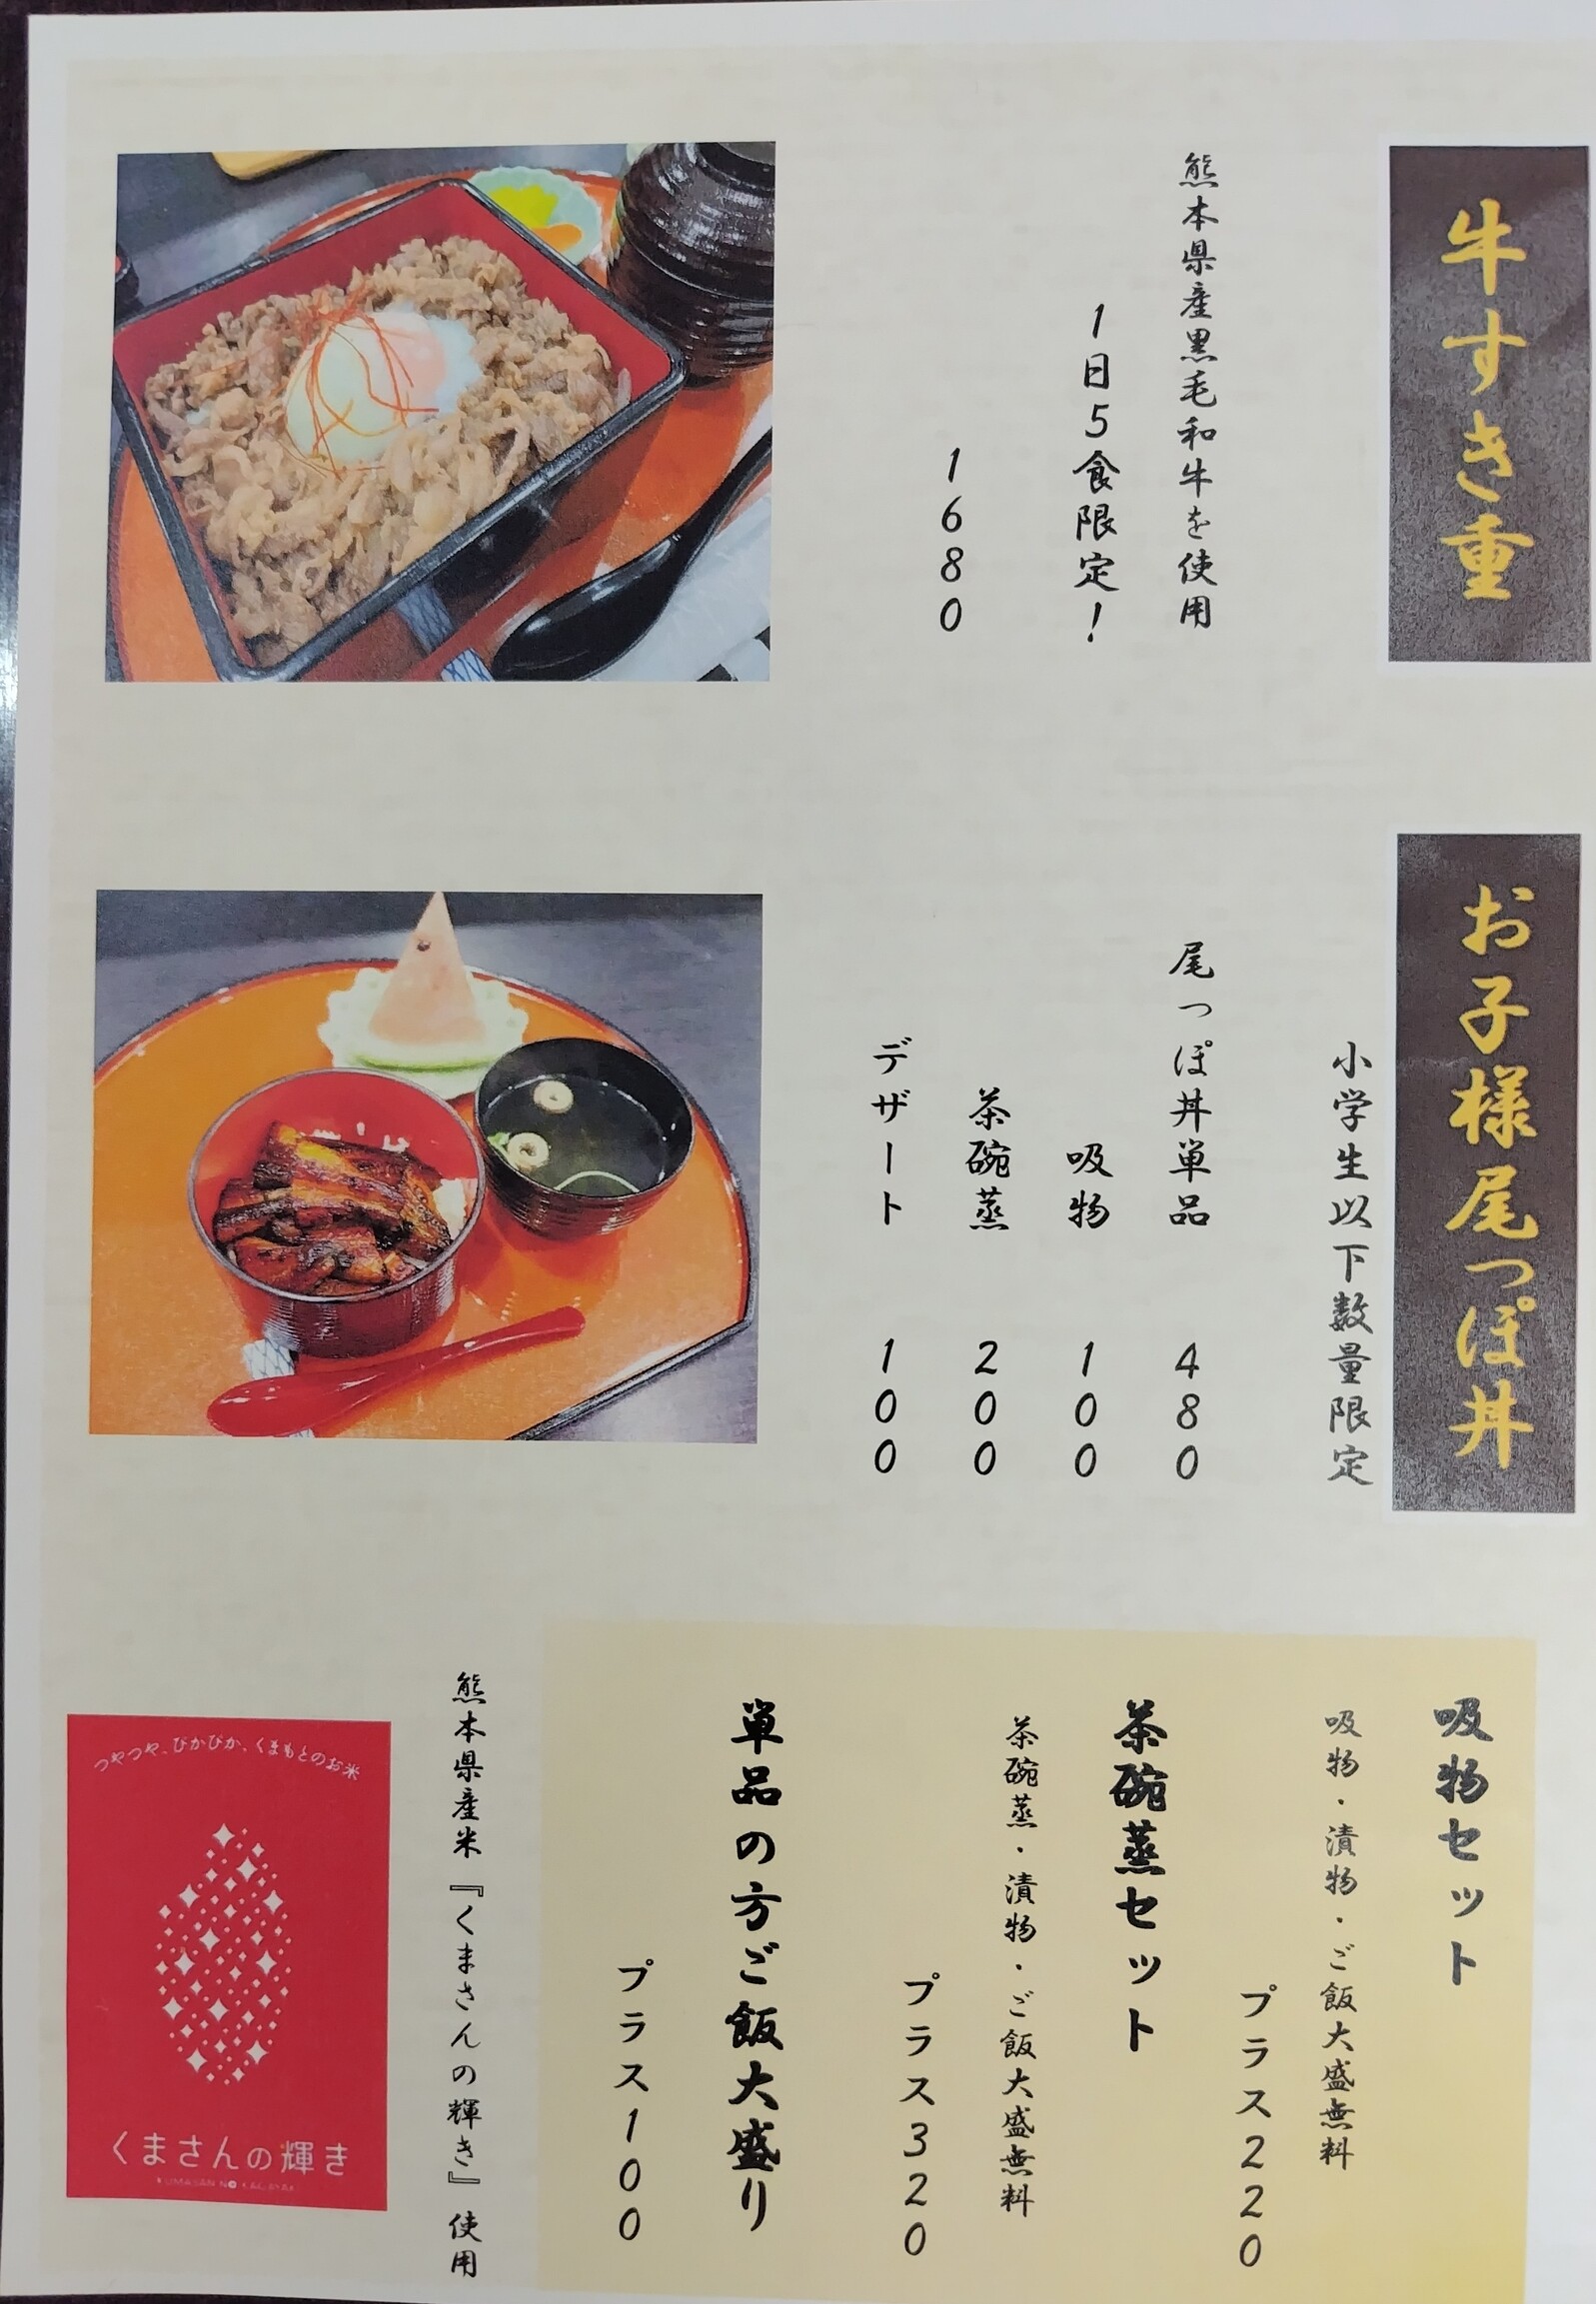 牛すき重
熊本県産黒毛和牛を使用
1日5食限定!
1680
お子様尾っぽ丼
小学生以下数量限定
尾っぽ丼単品 480
吸物 100
茶碗蒸 200
デザート 100
吸物セット
吸物・漬物・ご飯大盛無料
プラス220
茶碗蒸セット
茶碗蒸・漬物・ご飯大盛無料
プラス320
単品の方ご飯大盛り
プラス100
熊本県産米『くまさんの輝き』使用
つやつや、ぴかぴか、くまもとのお米
くまさんの輝き
KUMASAN NO KAGAYAKI